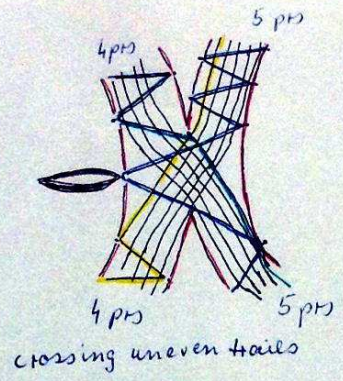 5 prs
4 prs
4 prs
5 prs
crossing uneven trails